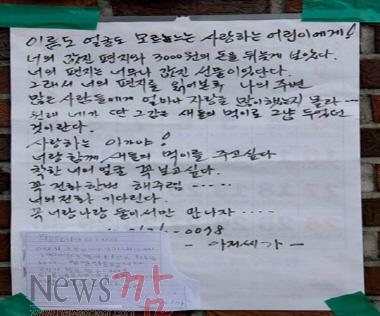 이름도 얼굴도 모르는 사랑하는 어린이에게!
너의 값진 편지와 3000원의 돈을 뒤늦게 보았다.
너의 편지는 너무나 값진 선물이었단다.
그래서 너의 편지를 읽어보며 나의 주변
많은 사람들에게 얼마나 자랑을 많이 했는지 몰라
원래 네가 딴 그 감은 새들의 먹이로 그냥 두었던
것이란다.
사랑하는 아가야!
너랑 함께 새들의 먹이를 주고싶다
착한 너의 얼굴 꼭 보고싶다.
꼭 전화한번 해주렴 ·····
너의 전화 기다린다.
꼭 너랑 나랑 둘이서만 만나자 ·····
0098
- 아저씨가 -
News깜